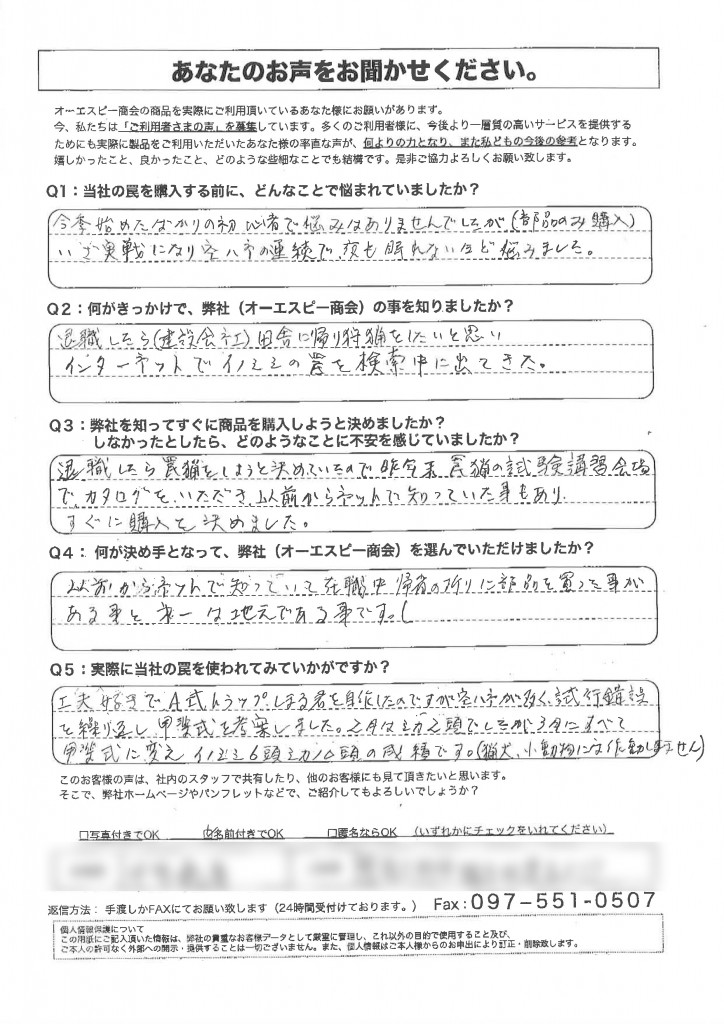 あなたのお声をお聞かせください。
オーエスピー商会の商品を実際にご利用頂いているあなた様にお願いがあります。
今、私たちは「ご利用者さまの声」を募集しています。多くのご利用者様に、今後より一層質の高いサービスを提供する
ためにも実際に製品をご利用いただいたあなた様の率直な声が、何よりの力となり、また私どもの今後の参考となります。
嬉しかったこと、良かったこと、どのような些細なことでも結構です。是非ご協力よろしくお願い致します。
Q1：当社の罠を購入する前に、どんなことで悩まれていましたか？
今季始めたばかりの初心者で悩みはありませんでしたが(部品のみ購入)
いざ実戦になり空ハネの連続で夜も眠れないほど悩みました。
Q2：何がきっかけで、弊社（オーエスピー商会）の事を知りましたか？
退職したら(建設会社)田舎に帰り狩猟をしたいと思い
インターネットでイノシシの罠を検索中に出てきた。
Q3：弊社を知ってすぐに商品を購入しようと決めましたか？
しなかったとしたら、どのようなことに不安を感じていましたか？
退職したら罠猟をしようと決めていたので昨年末罠猟の試験講習会場
で、カタログをいただき、以前からネットで知っていた事もあり、
すぐに購入を決めました。
Q4： 何が決め手となって、弊社（オーエスピー商会）を選んでいただけましたか？
以前からネットで知っていて在職中帰省の折りに部品を買った事が
ある事と第一は地元である事です。
Q5：実際に当社の罠を使われてみていかがですか？
工夫好きでA式トラップ、しまる君を自作したのですが空ハネが多く、試行錯誤
を繰り返し甲斐式を考案しました。2月はシカ2頭でしたが3月にすべて
甲斐式に変えイノシシ6頭シカ10頭の成績です。(猟犬、小動物には作動しません)
このお客様の声は、社内のスタッフで共有したり、他のお客様にも見て頂きたいと思います。
そこで、弊社ホームページやパンフレットなどで、ご紹介してもよろしいでしょうか？
□写真付きでOK ☑名前付きでOK □匿名ならOK （いずれかにチェックをいれてください）
返信方法： 手渡しかFAXにてお願い致します（24時間受付けております。） Fax：097-551-0507
個人情報保護について
この用紙にご記入頂いた情報は、弊社の貴重なお客様データとして厳重に管理し、これ以外の目的で使用すること及び、
ご本人の許可なく外部への開示・提供することは一切ございません。また、個人情報はご本人様からのお申出により訂正・削除致します。